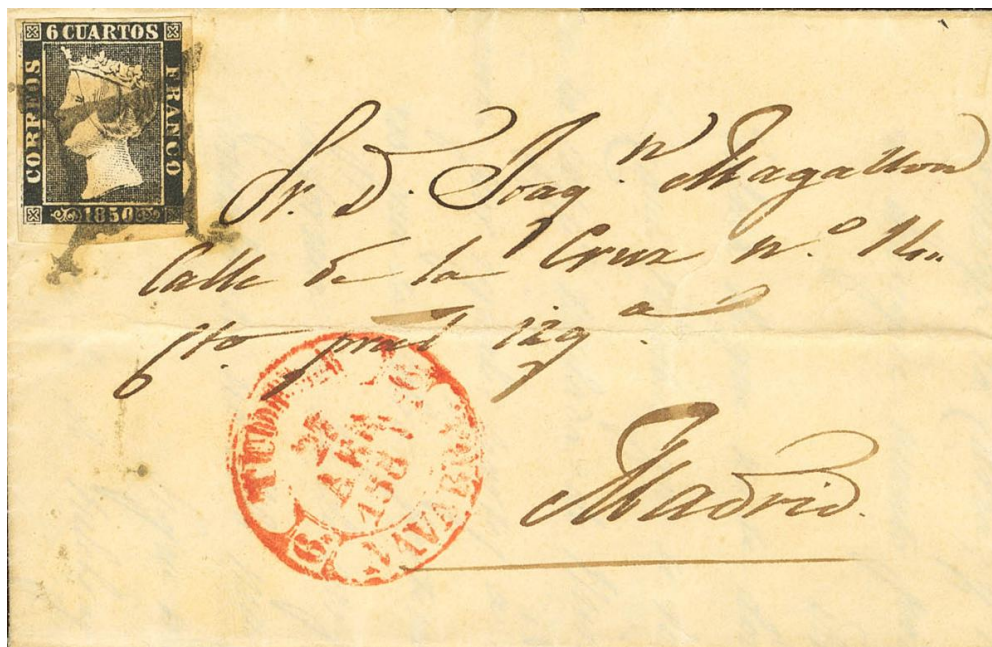 6 CUARTOS
CORREOS
FRANCO
1850
Sr. D. Joaq.n Magallon
Calle de la Cruz n.o 14
cto pral izq.a
Madrid.
TUDELA
ABR
NAVARRA
6